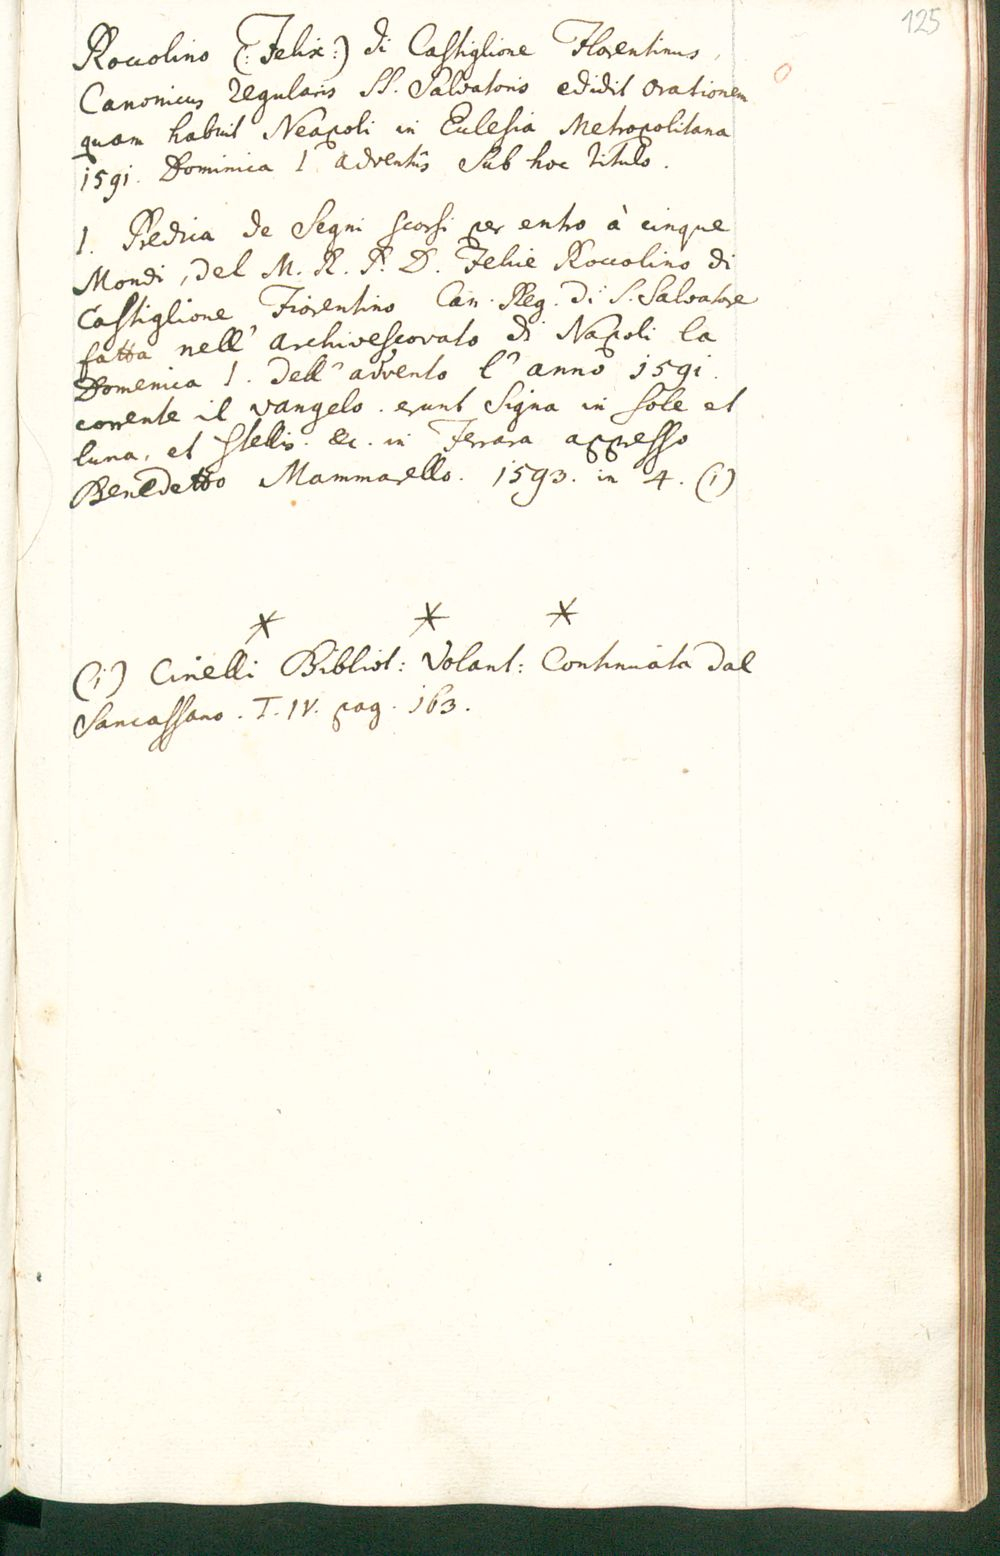 125
Roccolino (: Felix :) di Castiglione Florentinus,
Canonicus regularis SS. Salvatoris edidit orationem
quam habuit Neapoli in Eclesia Metropolitana
1591. Dominica I adventûs sub hoc titulo.
1. Predica de Segni scorsi per entro à cinque
Mondi, del M. R. P. D. Felice Roccolino di
Castiglione Fiorentino Can. Reg. di S. Salvatore
fatta nell' archivescovato di Napoli la
Domenica I. dell' avvento l' anno 1591.
corrente il vangelo. erunt Signa in sole et
luna, et stellis. &c. in Ferrara appresso
Benedetto Mammarello. 1593. in 4. (1)
* * *
(1) Cinelli Bibliot: Volant: Continuata dal
Sancassano. T. IV. pag. 163.